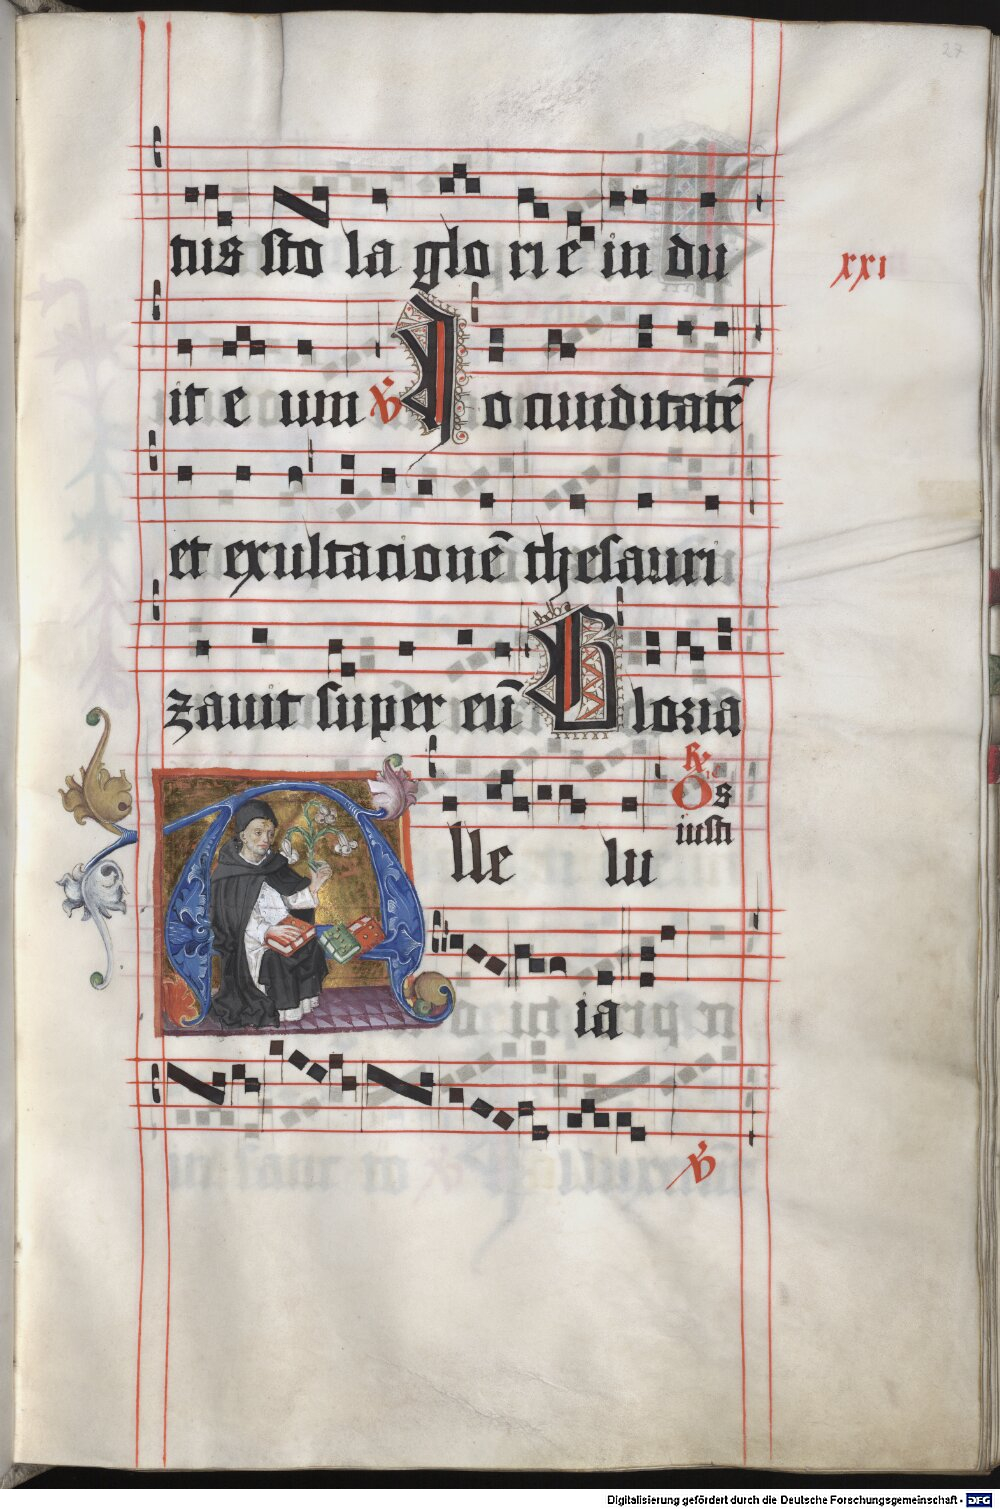 27
tus sto la glo ri e in du
xxi
it e um ℣ Iocunditatē
et exultacionē thesauri
zauit super eū Gloria
℟
Os
iusti
Alle lu
ia
℣
Digitalisierung gefördert durch die Deutsche Forschungsgemeinschaft - DFG